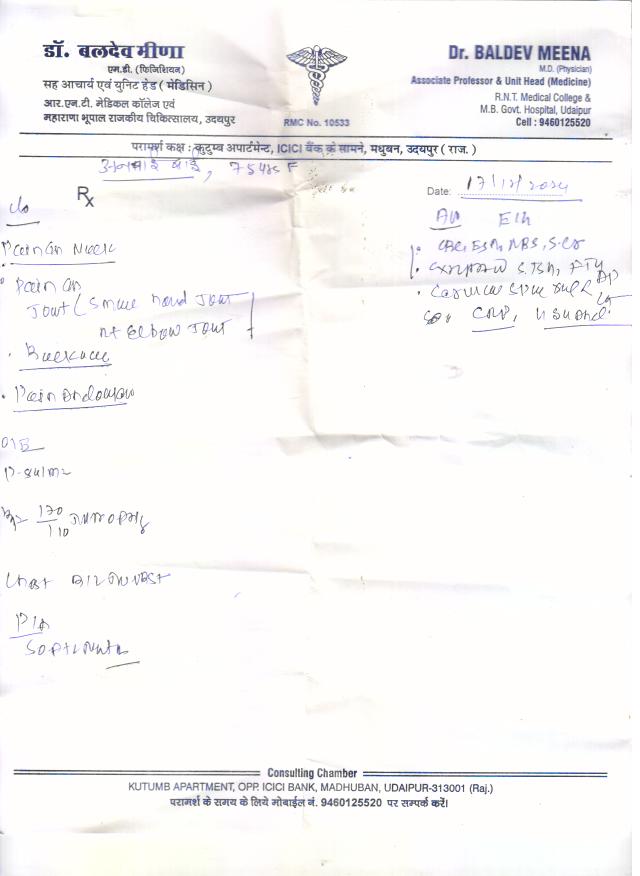 डॉ. बलदेव मीणा
एम.डी. (फिजिशियन)
सह आचार्य एवं यूनिट हेड ( मेडिसिन )
आर.एन.टी. मेडिकल कॉलेज एवं
महाराणा भूपाल राजकीय चिकित्सालय, उदयपुर
RMC No. 10533
Dr. BALDEV MEENA
M.D. (Physician)
Associate Professor & Unit Head (Medicine)
R.N.T. Medical College &
M.B. Govt. Hospital, Udaipur
Cell : 9460125520
परामर्श कक्ष : कुटुम्ब अपार्टमेन्ट, ICICI बैंक के सामने, मधुबन, उदयपुर ( राज. )
बाई, 75 F
Date: 17/12/2024
Rx
c/o
Pain in Neck
Pain in
Joint ( Small hand Joint
Rt Elbow Joint
Backache
Pain abdomen
O/E
P-84/m
170/110
Chest B/L
P/A
Soft
CBC, ESR, RBS, S.Cr
S.TSH,
Cervical spine
CRP,
Consulting Chamber
KUTUMB APARTMENT, OPP. ICICI BANK, MADHUBAN, UDAIPUR-313001 (Raj.)
परामर्श के समय के लिये मोबाईल नं. 9460125520 पर सम्पर्क करें।